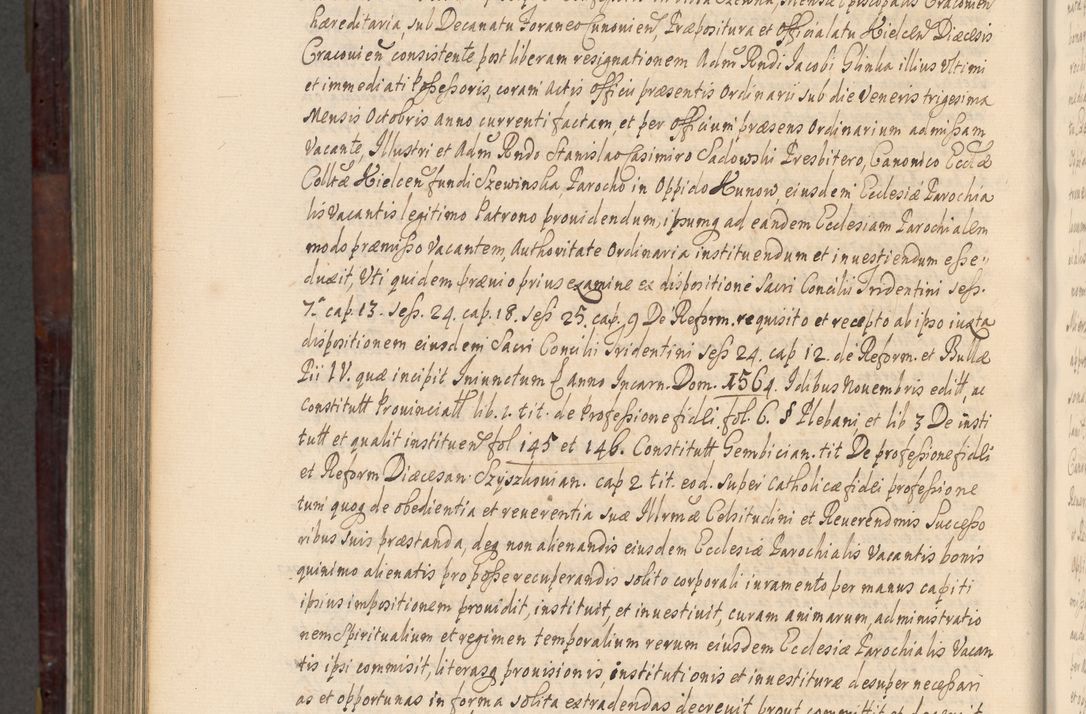 hæreditaria, sub Decanatu Foraneo Cunovien, Præpositura et officialatu Kielcen Diæcesis
Cracovien consistente post liberam resignationem Admr Rndi Jacobi Glinka illius Vltimi
et immediati Poßeßoris, coram actis officii præsentis Ordinarii sub die Veneris trigesima
Mensis Octobris anno currenti factam, et per officium præsens Ordinarium admißam
Vacante, Illustri et Adm Rndo Stanislao Casimiro Sadowski Presbitero, Canonico Eccliæ
Colltæ Kielcen fundi Szewinska, Parocho in Oppido Kunow, eiusdem Ecclesiæ Parochia
lis Vacantis legitimo Patrono providendum, ipsumq ad eandem Ecclesiam Parochialem
modo præmißo Vacantem, Authoritate Ordinaria instituendum et investiendum eße
duxit, Vti quidem prævio prius examine ex dispositione Sacri Concilii Tridentini seß.
7.a cap. 13. seß. 24. cap. 18. seß 25. cap. 9 De Reform. requisito et recepto ab ipso iuxta
dispositionem eiusdem Sacri Concilii Tridentini seß 24. cap 12. de Reform. et Bullæ
Pii IV. quæ incipit Iniunctum anno Incarn. Dom. 1564. Idibus Novembris editt, ac
Constitutt Provinciatt lib. 1. tit. de Profeßione fidei fol. 6. § Plebani, et lib 3 De insti
tutt et qualit instituen fol 145 et 146. Constitutt Gembician. tit De profeßione fidei
et Reform Diæcesan Szyszkovian. cap 2 tit. eod. super Catholicæ fidei profeßione
tum quoq de obedientia et reverentia suæ Illrmæ Celsitudini et Reverendmis Succeßo
ribus suis præstanda, deq non alienandis eiusdem Ecclesiæ Parochialis Vacantis bonis
quinimo alienatis pro poße recuperandis solito corporali iuramento per manus capiti
ipsius impositionem providit, instituit, et investivit, curam animarum, administratio
nem Spiritualium et regimen temporalium rerum eiusdem Ecclesiæ Parochialis Vacan
tis ipsi commisit, literasq provisionis, institutionis et investituræ desuper neceßari
as et opportunas in forma solita extradendas decrevit prout committit et decernit